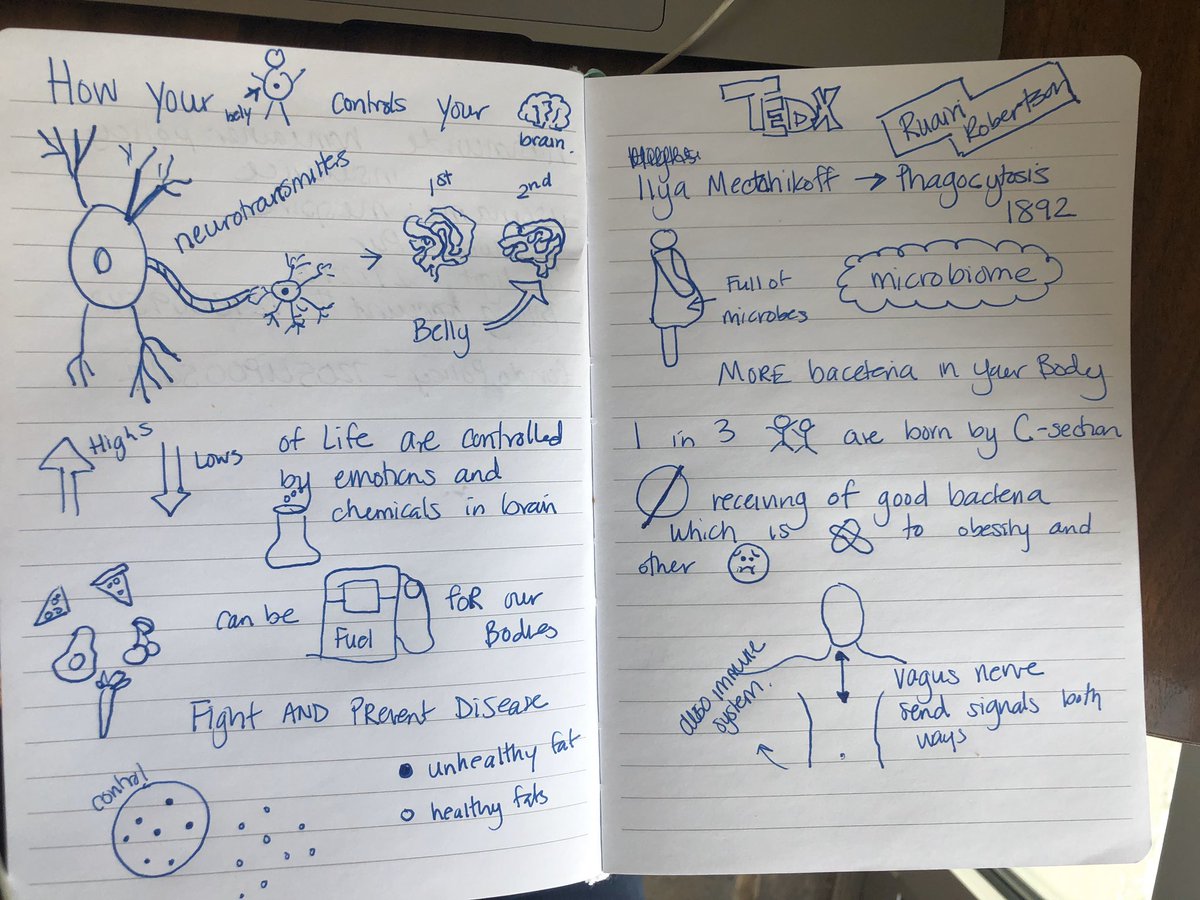 How your bely controls your brain.
neurotransmites
1st 2nd
Belly
Highs Lows of Life are controlled
by emotions and
chemicals in brain
can be Fuel foR our
Bodies
Fight AND PReveNt DISeASe
control
unhealthy fat
healthy fats
TEDX
Ruairi
Robertson
Ilya Mectahikoff → Phagocytosis
1892
Full of
microbes
microbiome
MORE baceteria in your Body
1 in 3 are born by C-section
receiving of good bacteria
which is to obesity and
other
also immune
system.
Vagus nerve
send signals both
ways